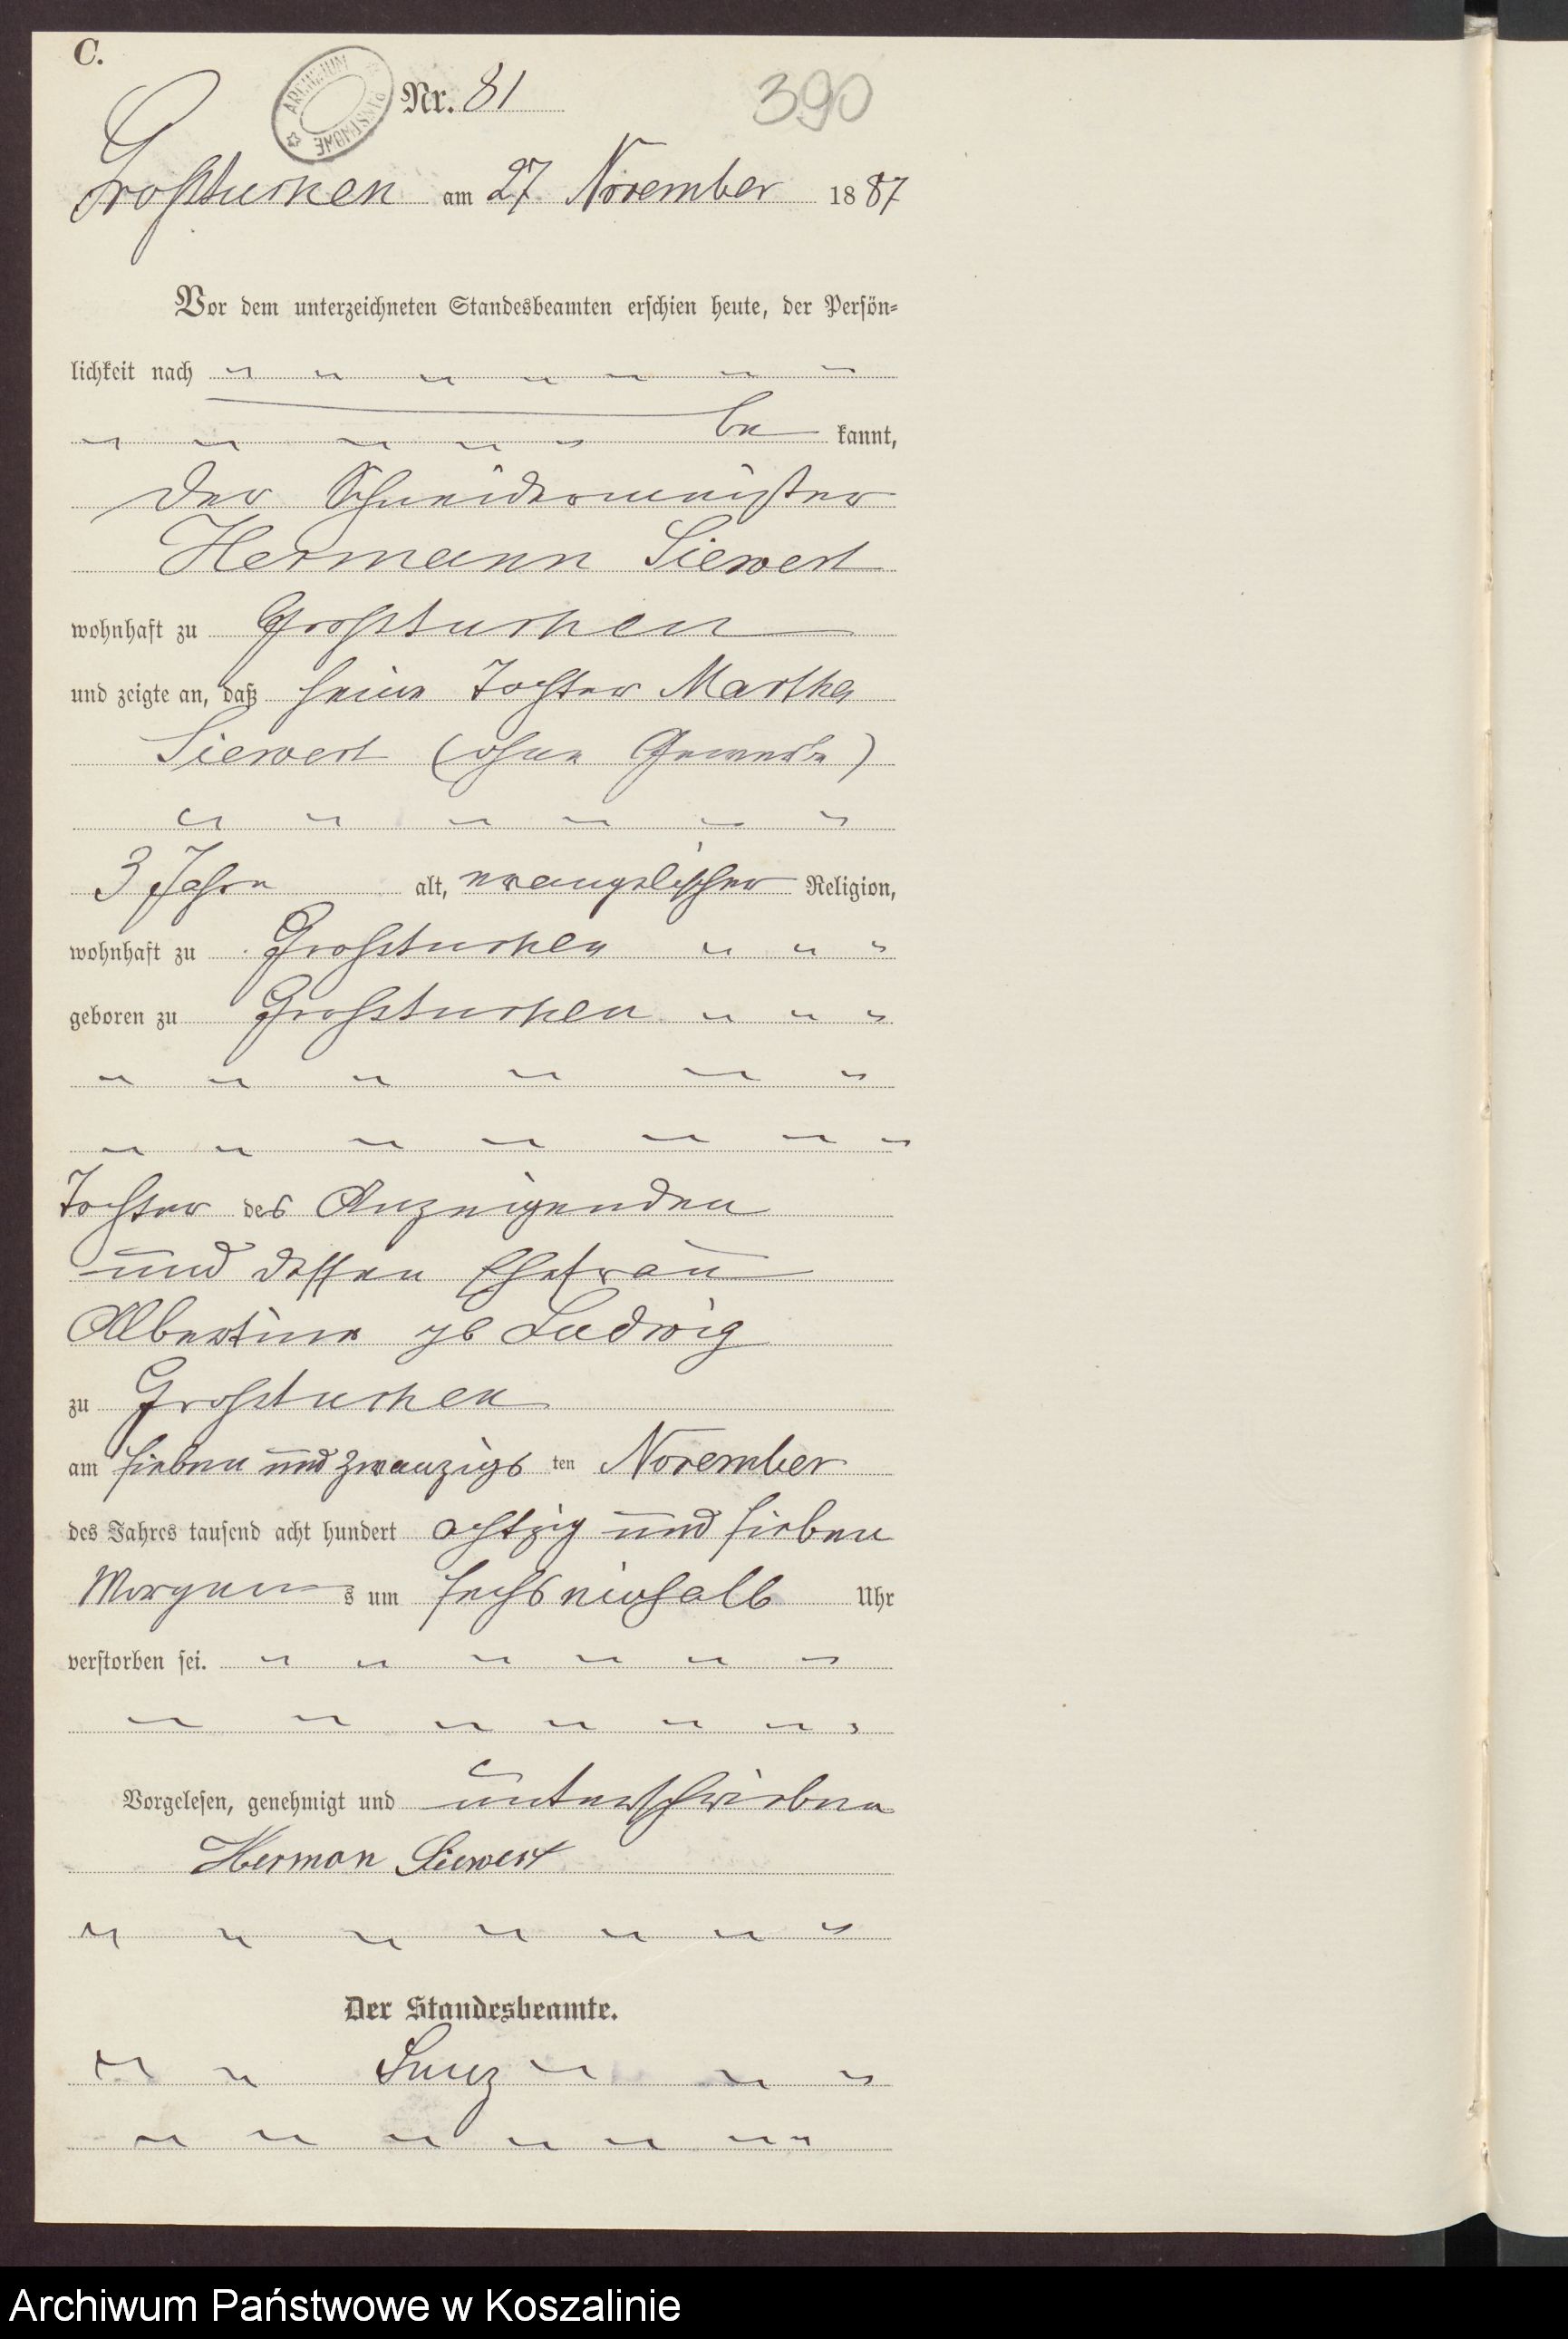 C.
ARCHIWUM PAŃSTWOWE
Nr. 81
390
Großtuchen am 27 November 1887
Vor dem unterzeichneten Standesbeamten erschien heute, der Persön-
lichkeit nach
be kannt,
der Schneidermeister
Hermann Siewert
wohnhaft zu Großtuchen
und zeigte an, daß seine Tochter Martha
Siewert (ohne Gewerbe)
3 Jahre alt, evangelischer Religion,
wohnhaft zu Großtuchen
geboren zu Großtuchen
Tochter des Anzeigenden
und dessen Ehefrau
Albertine gb Ludwig
zu Großtuchen
am sieben und zwanzigs ten November
des Jahres tausend acht hundert achtzig und sieben
Morgens um sechseinhalb Uhr
verstorben sei.
Vorgelesen, genehmigt und unterschrieben
Herman Siewert
Der Standesbeamte.
Archiwum Państwowe w Koszalinie